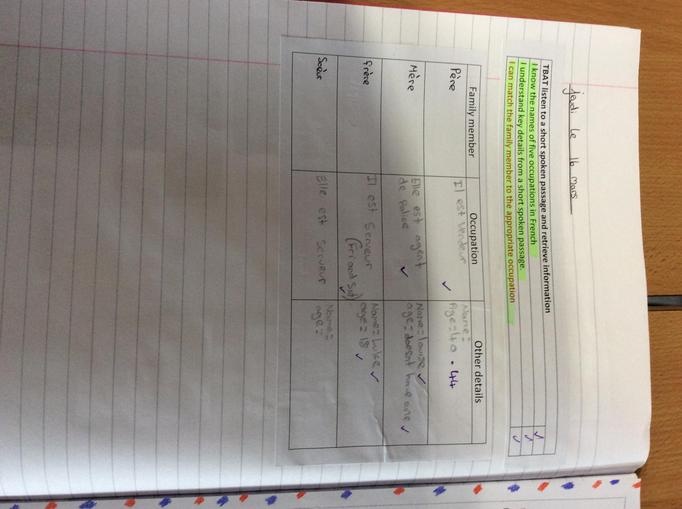 jeudi le 16 mars
TBAT listen to a short spoken passage and retrieve information
I know the names of five occupations in French
I understand key details from a short spoken passage.
I can match the family member to the appropriate occupation
Family member Occupation Other details
Père Il est vendeur Name=
Age=40 • 44
Mère Elle est agent Name=Louise
de police age=doesnt have one
frère Il est Serveur Name=Luke
(Fri and Sat) age=18
Soeur Elle est serveur Name=
age=